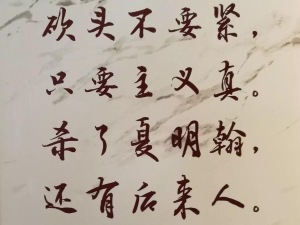 砍头不要紧，
只要主义真。
杀了夏明翰，
还有后来人。